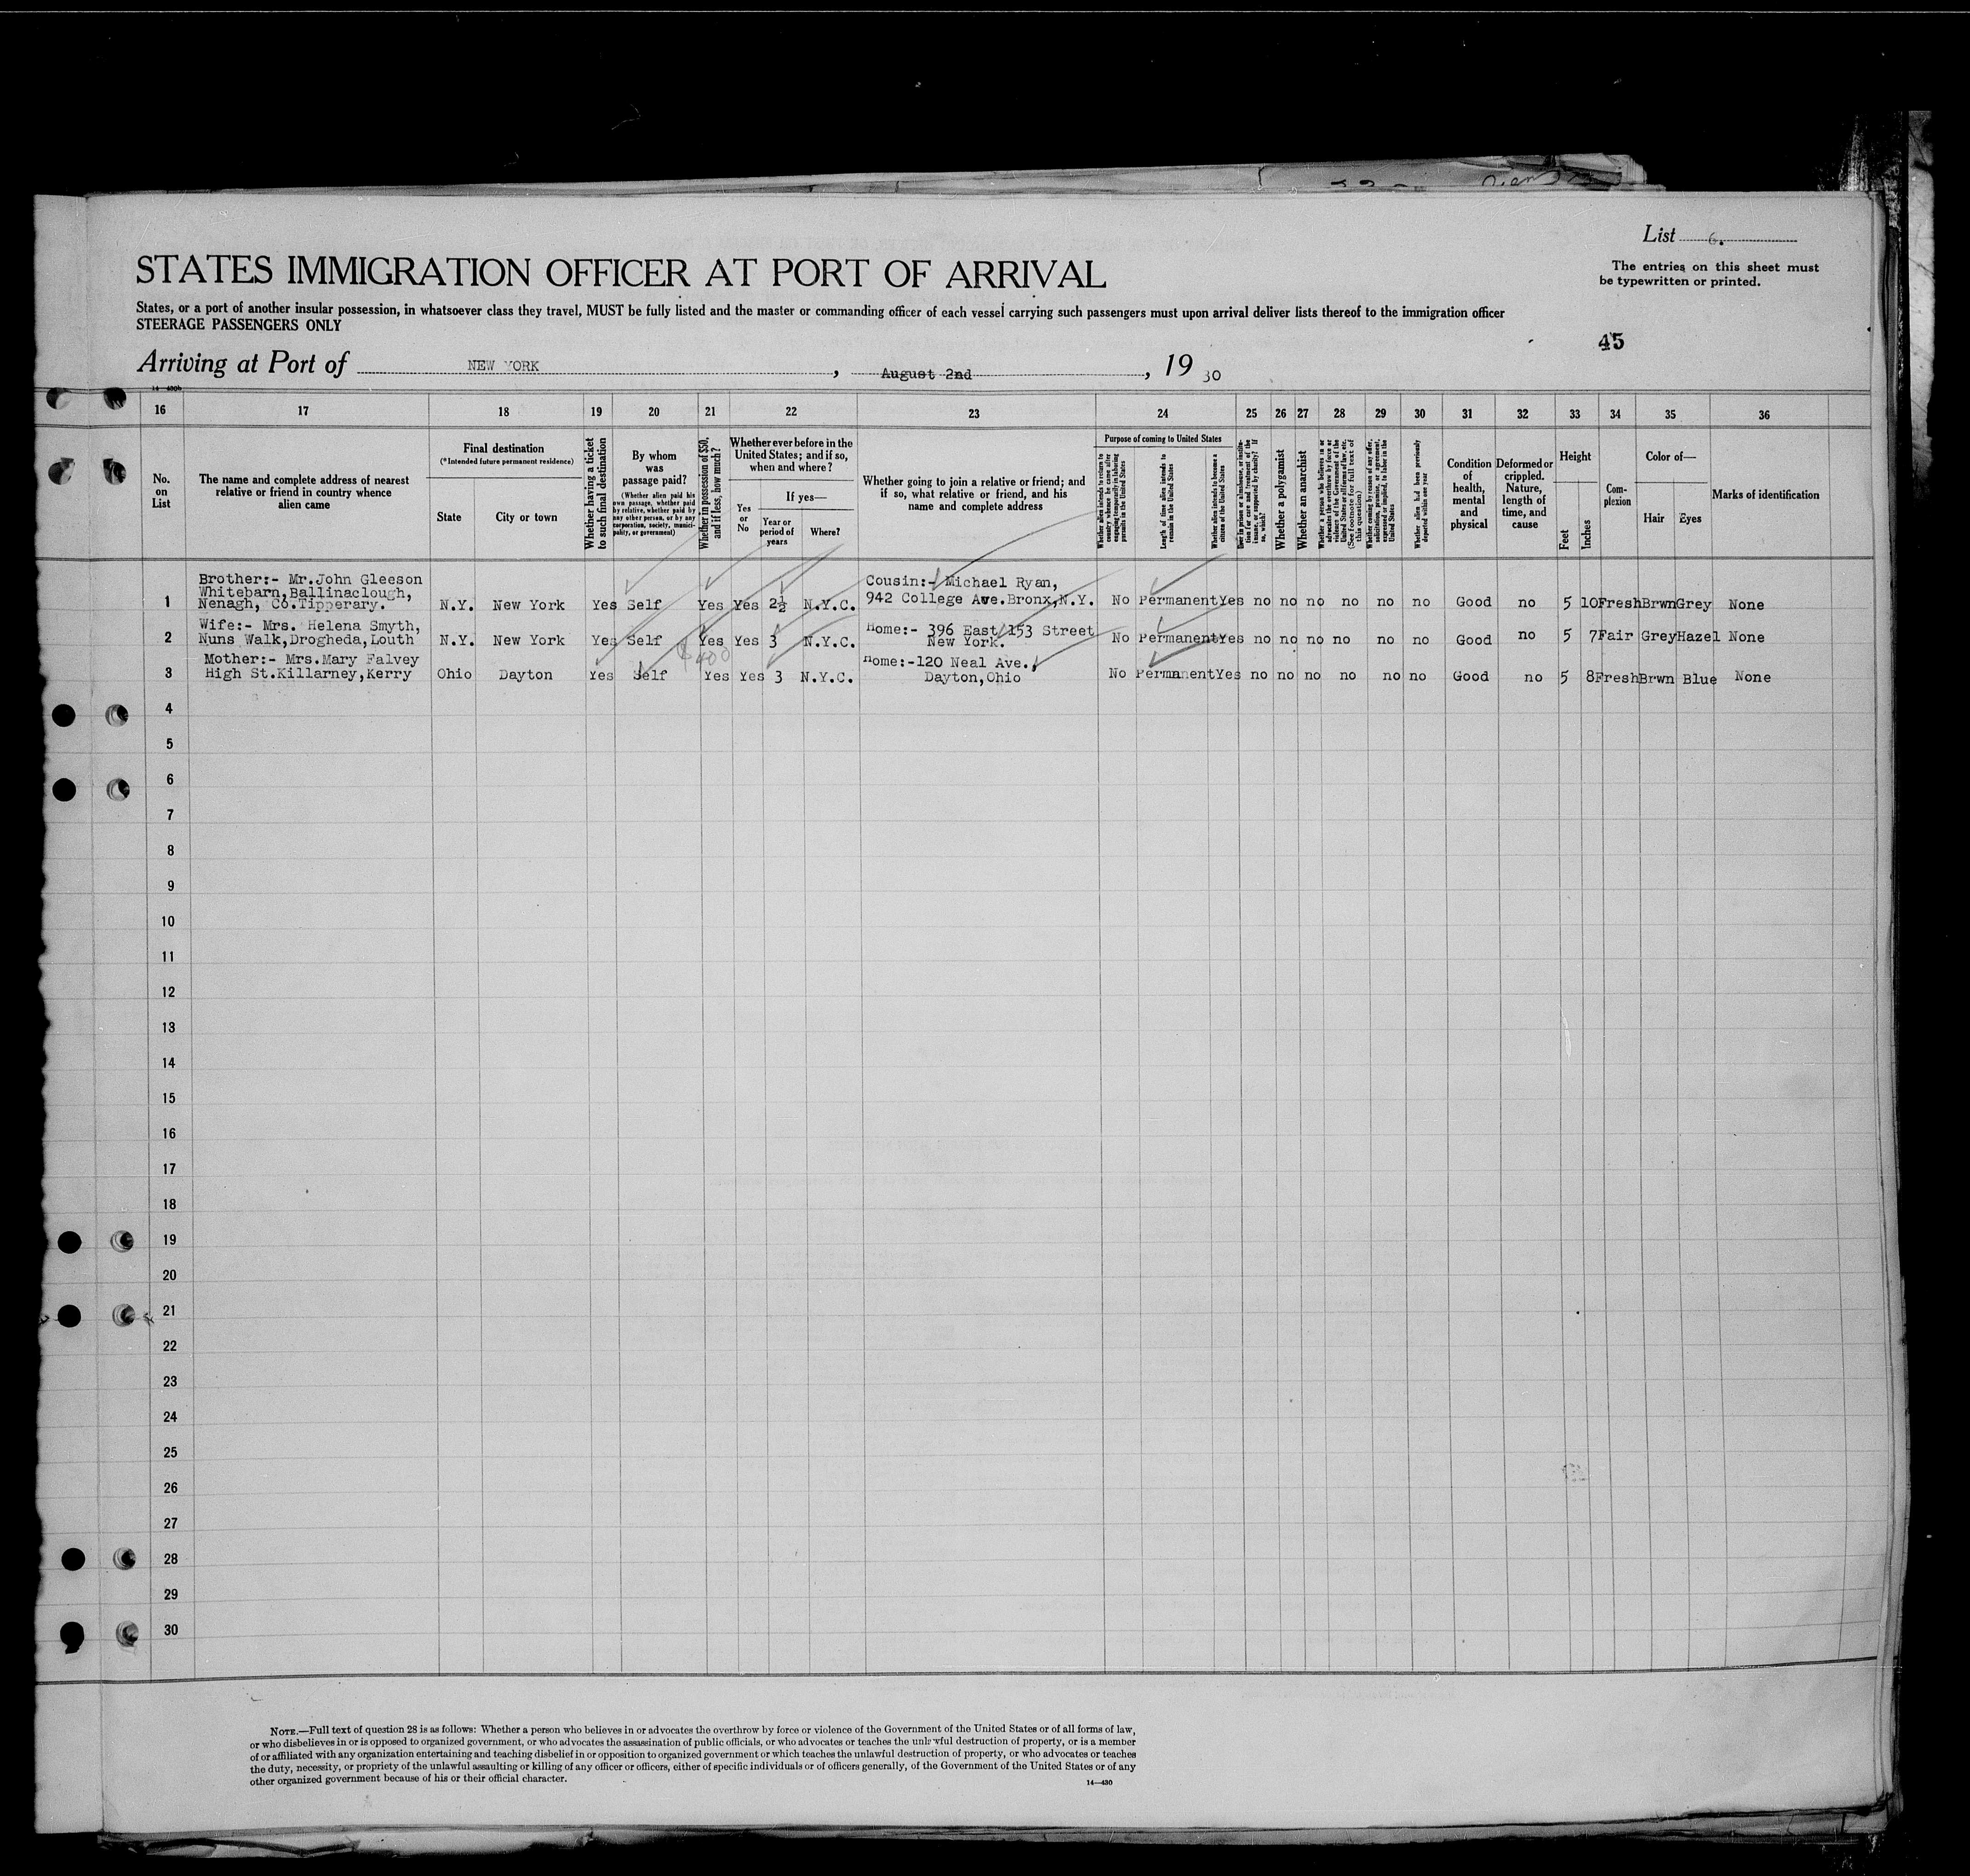 List 6.
STATES IMMIGRATION OFFICER AT PORT OF ARRIVAL
The entries on this sheet must
be typewritten or printed.
States, or a port of another insular possession, in whatsoever class they travel, MUST be fully listed and the master or commanding officer of each vessel carrying such passengers must upon arrival deliver lists thereof to the immigration officer
STEERAGE PASSENGERS ONLY
45
Arriving at Port of NEW YORK, August 2nd, 19 30
14—430b
16 17 18 19 20 21 22 23 24 25 26 27 28 29 30 31 32 33 34 35 36
No.
on
List
The name and complete address of nearest
relative or friend in country whence
alien came
Final destination
(*Intended future permanent residence)
State
City or town
Whether having a ticket
to such final destination
By whom
was
passage paid?
(Whether alien paid his
own passage, whether paid
by relative, whether paid by
any other person, or by any
corporation, society, munici-
pality, or government)
Whether in possession of $50,
and if less, how much?
Whether ever before in the
United States; and if so,
when and where?
Yes
or
No
If yes—
Year or
period of
years
Where?
Whether going to join a relative or friend; and
if so, what relative or friend, and his
name and complete address
Purpose of coming to United States
Whether alien intends to return to
country whence he came after
engaging temporarily in laboring
pursuits in the United States
Length of time alien intends to
remain in the United States
Whether alien intends to become a
citizen of the United States
Ever in prison or almshouse, or institu-
tion for care and treatment of the
insane, or supported by charity? If
so, which?
Whether a polygamist
Whether an anarchist
Whether a person who believes in or
advocates the overthrow by force or
violence of the Government of the
United States or all forms of law, etc.
(See footnote for full text of
this question)
Whether coming by reason of any offer,
solicitation, promise, or agreement,
expressed or implied, to labor in the
United States
Whether alien had been previously
deported within one year
Condition
of
health,
mental
and
physical
Deformed or
crippled.
Nature,
length of
time, and
cause
Height
Feet
Inches
Com-
plexion
Color of—
Hair
Eyes
Marks of identification
Brother:- Mr.John Gleeson
Whitebarn,Ballinaclough,
Nenagh, Co.Tipperary.
Cousin:- Michael Ryan,
942 College Ave.Bronx,N.Y.
1 N.Y. New York Yes Self Yes Yes 2½ N.Y.C. No Permanent Yes no no no no no no Good no 5 10 Fresh Brwn Grey None
Wife:- Mrs. Helena Smyth,
Nuns Walk,Drogheda,Louth
Home:- 396 East 153 Street
New York.
2 N.Y. New York Yes Self Yes Yes 3 N.Y.C. No Permanent Yes no no no no no no Good no 5 7 Fair Grey Hazel None
$400
Mother:- Mrs.Mary Falvey
High St.Killarney,Kerry
Home:-120 Neal Ave.,
Dayton,Ohio
3 Ohio Dayton Yes Self Yes Yes 3 N.Y.C. No Permanent Yes no no no no no no Good no 5 8 Fresh Brwn Blue None
4
5
6
7
8
9
10
11
12
13
14
15
16
17
18
19
20
21
22
23
24
25
26
27
28
29
30
NOTE.—Full text of question 28 is as follows: Whether a person who believes in or advocates the overthrow by force or violence of the Government of the United States or of all forms of law,
or who disbelieves in or is opposed to organized government, or who advocates the assassination of public officials, or who advocates or teaches the unlawful destruction of property, or is a member
of or affiliated with any organization entertaining and teaching disbelief in or opposition to organized government or which teaches the unlawful destruction of property, or who advocates or teaches
the duty, necessity, or propriety of the unlawful assaulting or killing of any officer or officers, either of specific individuals or of officers generally, of the Government of the United States or of any
other organized government because of his or their official character.
14—430